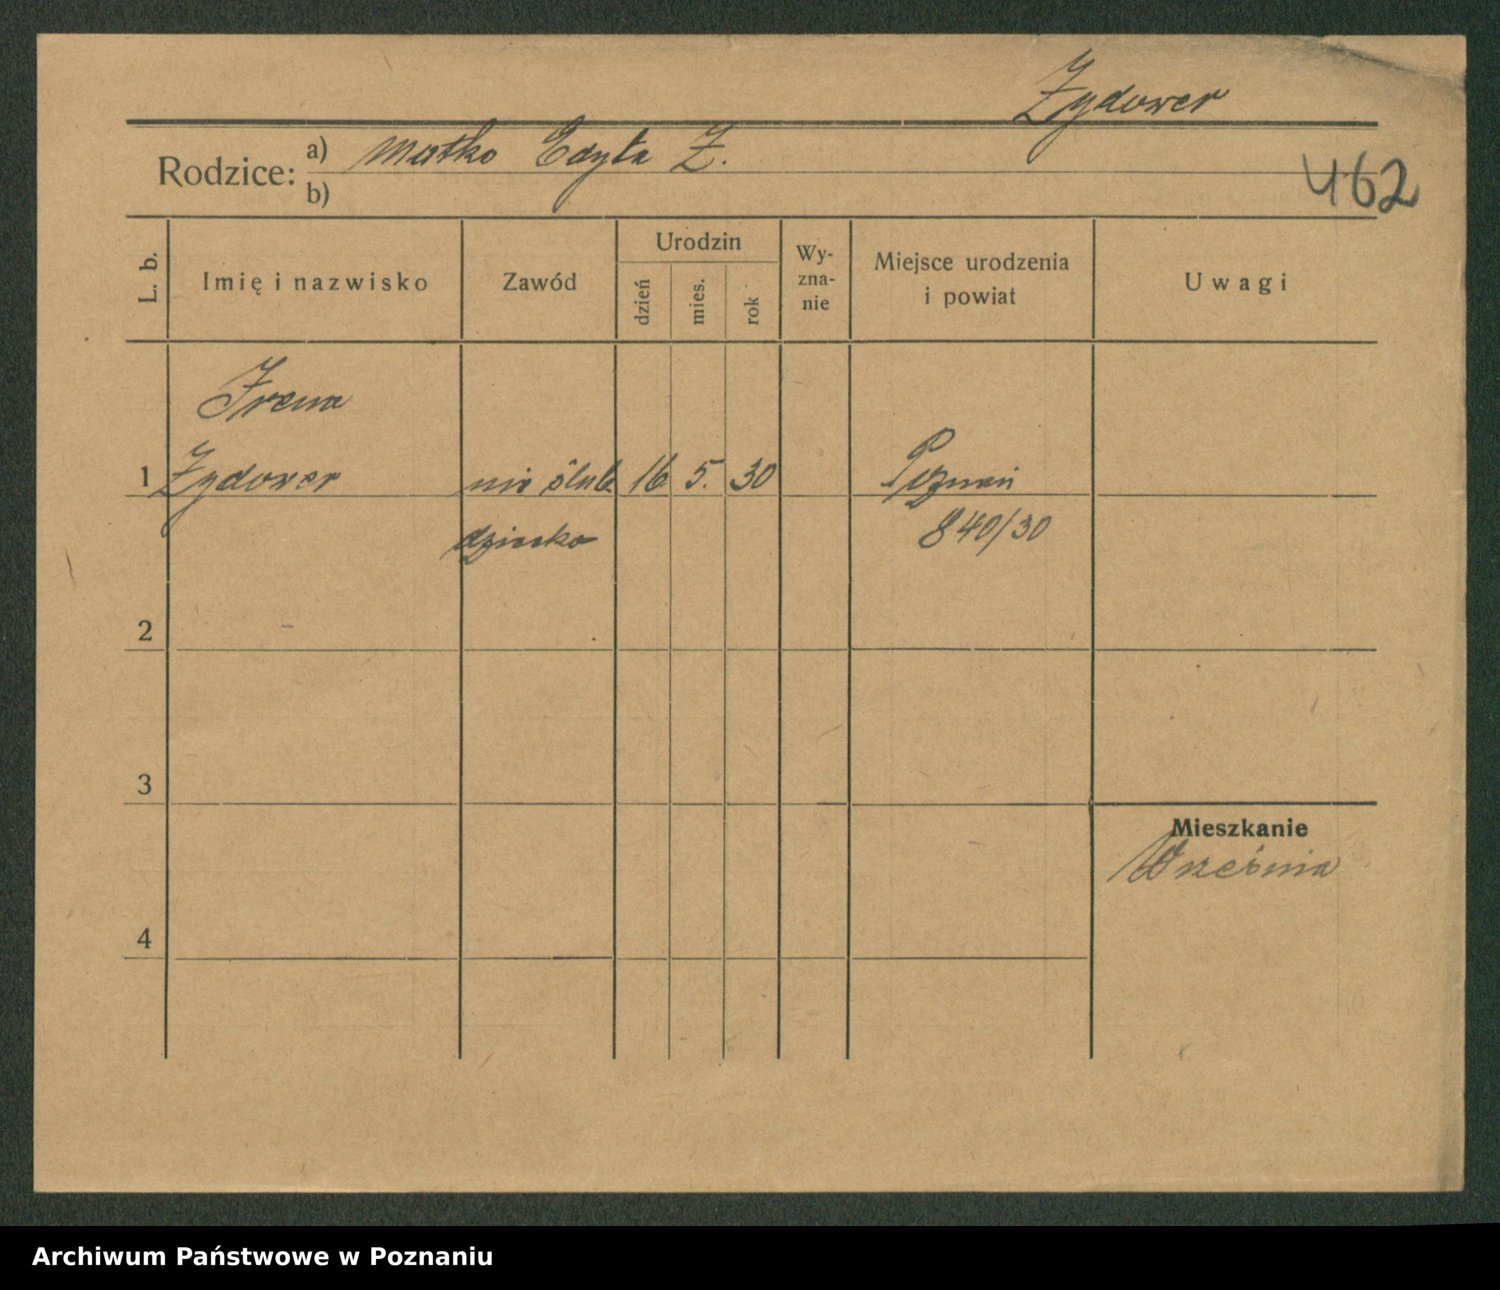 Zydower
Rodzice: a) matka Edyta Z.
b)
462
L. b.
Imię i nazwisko
Zawód
Urodzin
dzień
mies.
rok
Wy-
zna-
nie
Miejsce urodzenia
i powiat
Uwagi
Irena
1 Zydower nieślub. 16 5. 30 Poznań
dziecko 840/30
2
3
Mieszkanie
Września
4
Archiwum Państwowe w Poznaniu